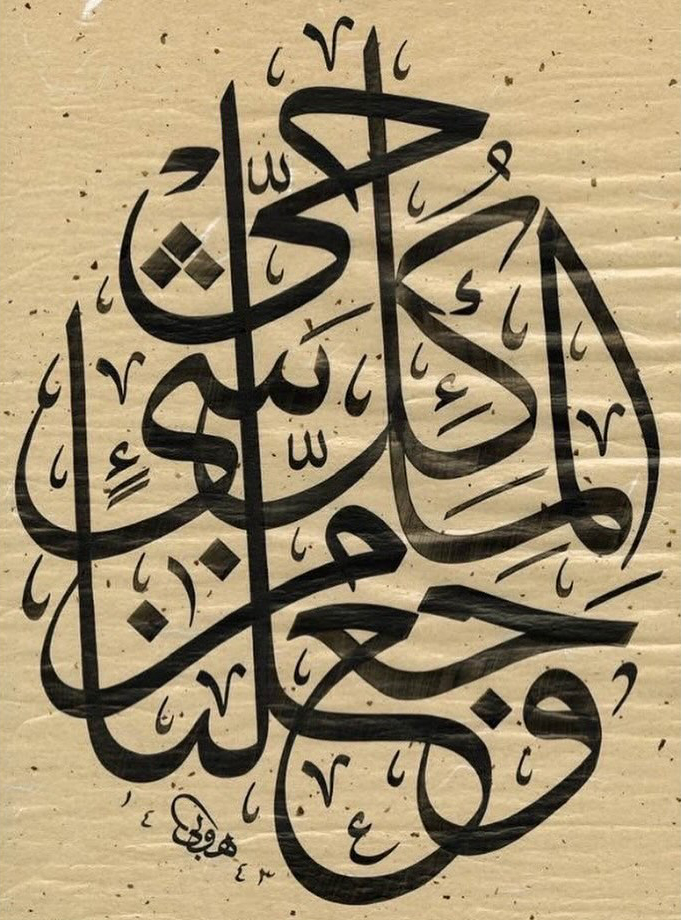 وَجَعَلْنَا مِنَ الْمَاءِ كُلَّ شَيْءٍ حَيٍّ
١٤ ٤٣